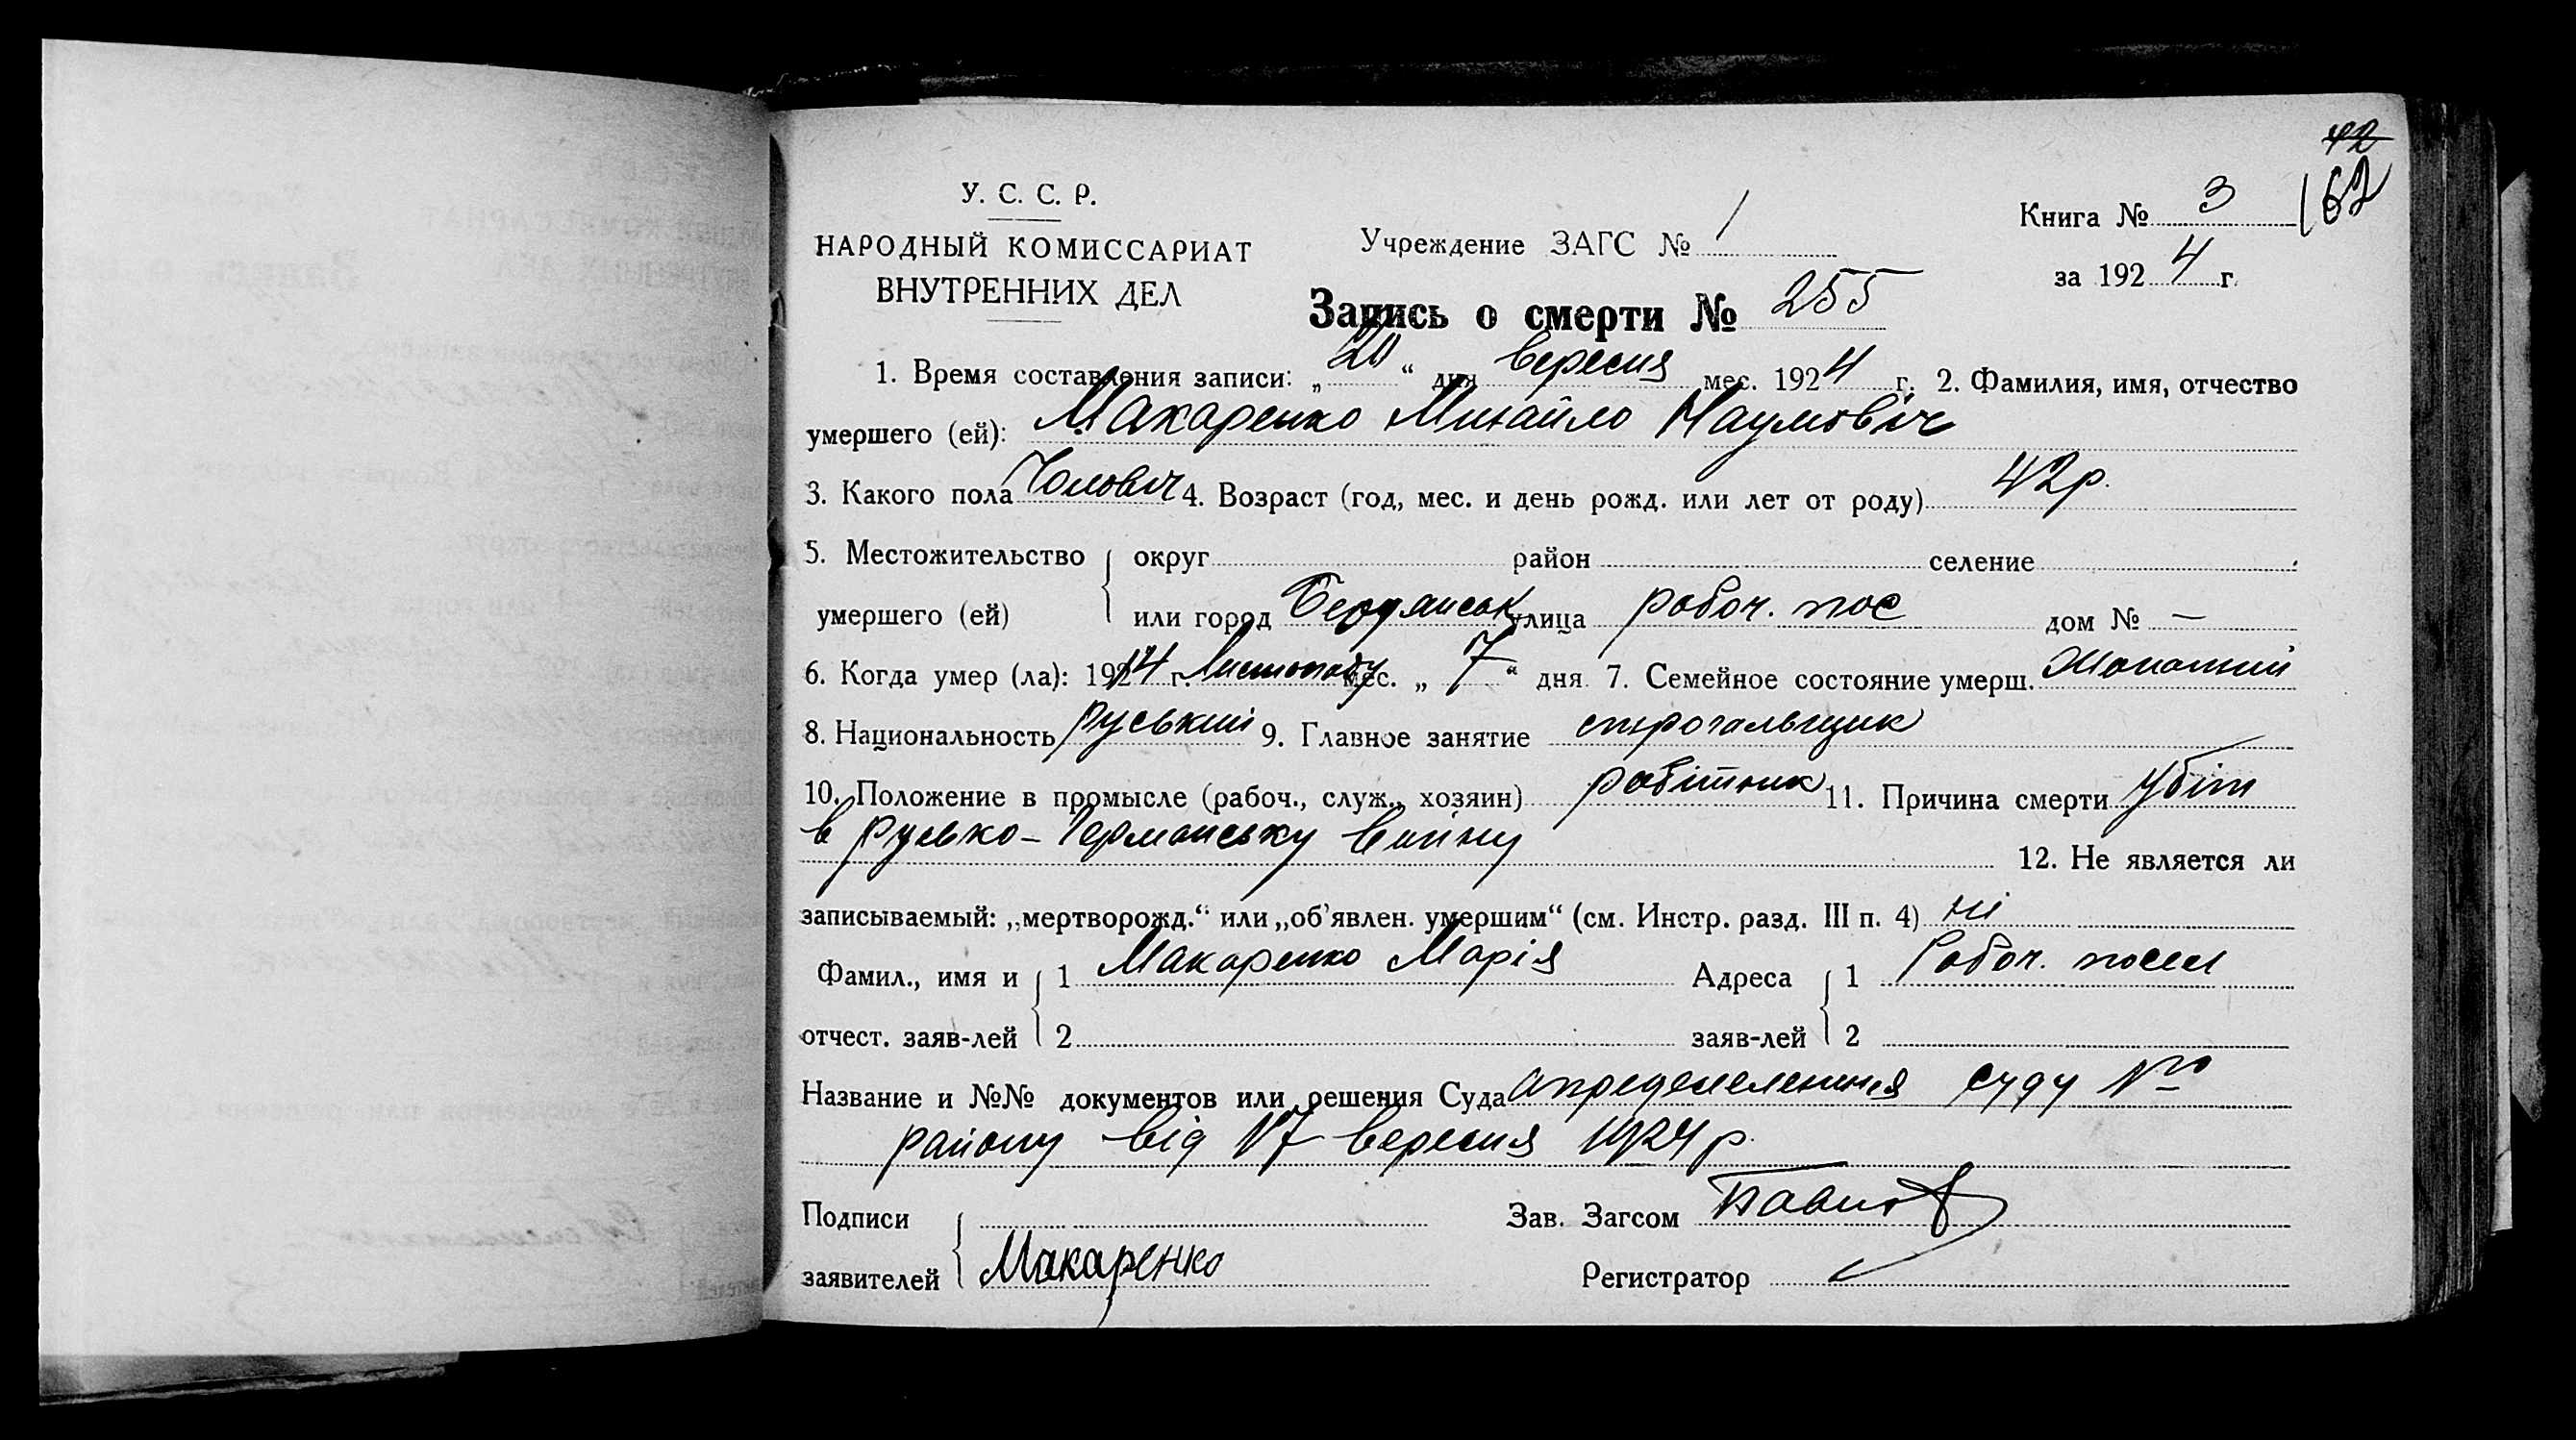 42
162
У. С. С. Р.
НАРОДНЫЙ КОМИССАРИАТ
ВНУТРЕННИХ ДЕЛ
Учреждение ЗАГС № 1
Книга № 3
за 1924 г.
Запись о смерти № 255
1. Время составления записи: „20“ дня вересня мес. 1924 г. 2. Фамилия, имя, отчество
умершего (ей): Макаренко Михайло Наумович
3. Какого пола Чоловіч 4. Возраст (год, мес. и день рожд. или лет от роду) 42 р.
5. Местожительство округ район селение
умершего (ей) или город Бердянськ улица робоч. пос дом № —
6. Когда умер (ла): 1914 г. Листопаду мес. „7“ дня 7. Семейное состояние умерш. Жонатий
8. Национальность руський 9. Главное занятие строгальщик
10. Положение в промысле (рабоч., служ., хозяин) робітник 11. Причина смерти убіт
в русько-Германську війну
12. Не является ли
записываемый: „мертворожд.“ или „об'явлен. умершим“ (см. Инстр. разд. III п. 4) ні
Фамил., имя и 1 Макаренко Марія Адреса 1 Робоч. посел
отчест. заяв-лей 2 заяв-лей 2
Название и №№ документов или решения Суда определения суду
району від 17 вересня 1924 р.
Подписи Зав. Загсом
заявителей Макаренко Регистратор